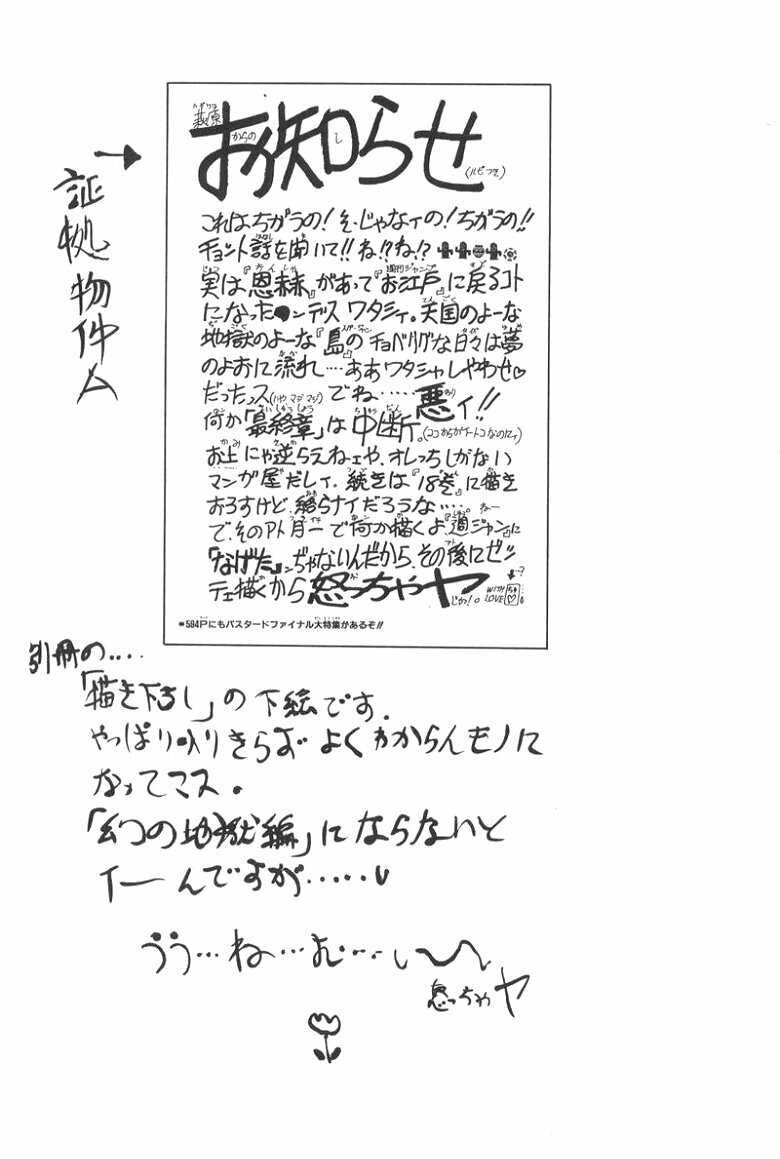 証拠物件A
萩原からのお知らせ(ルビつき)
これはちがうの!そーじゃなィの!ちがうの!!
チョット話を聞いて!!ね!?ね!?
実は『恩赦』があって『お江戸』に戻るコト
になったンデス ワタシィ。天国のよーな
地獄のよーな『島』のチョベリグな日々は夢
のよおに流れ…ああワタシャしやわせ♡
だったっス(ハヤ マジ マジ)でね……悪ィ!!
何か「最終章」は中断。(ココからがイートコなのにィ)
お上にゃ逆らえねェや、オレっちしがない
マンガ屋だしィ。続きは『18巻』に描き
おろすけど、終らナイだろうな…。ねー
で、そのアト月一で何か描くよ。『週ジャン』に
『なげた』んぢゃないんだから、その後にゼッ
テェ描くから怒っちゃヤ じゃ!。 WITH LOVE
＊594Pにもバスタードファイナル大特集があるぞ!!
別冊の….
「描き下ろし」の下絵です.
やっぱり入りきらず よくわからんモノに
なってマス。
「幻の地獄編」にならないと
イーんですが……
うう…ね…む…い〜
怒っちゃヤ